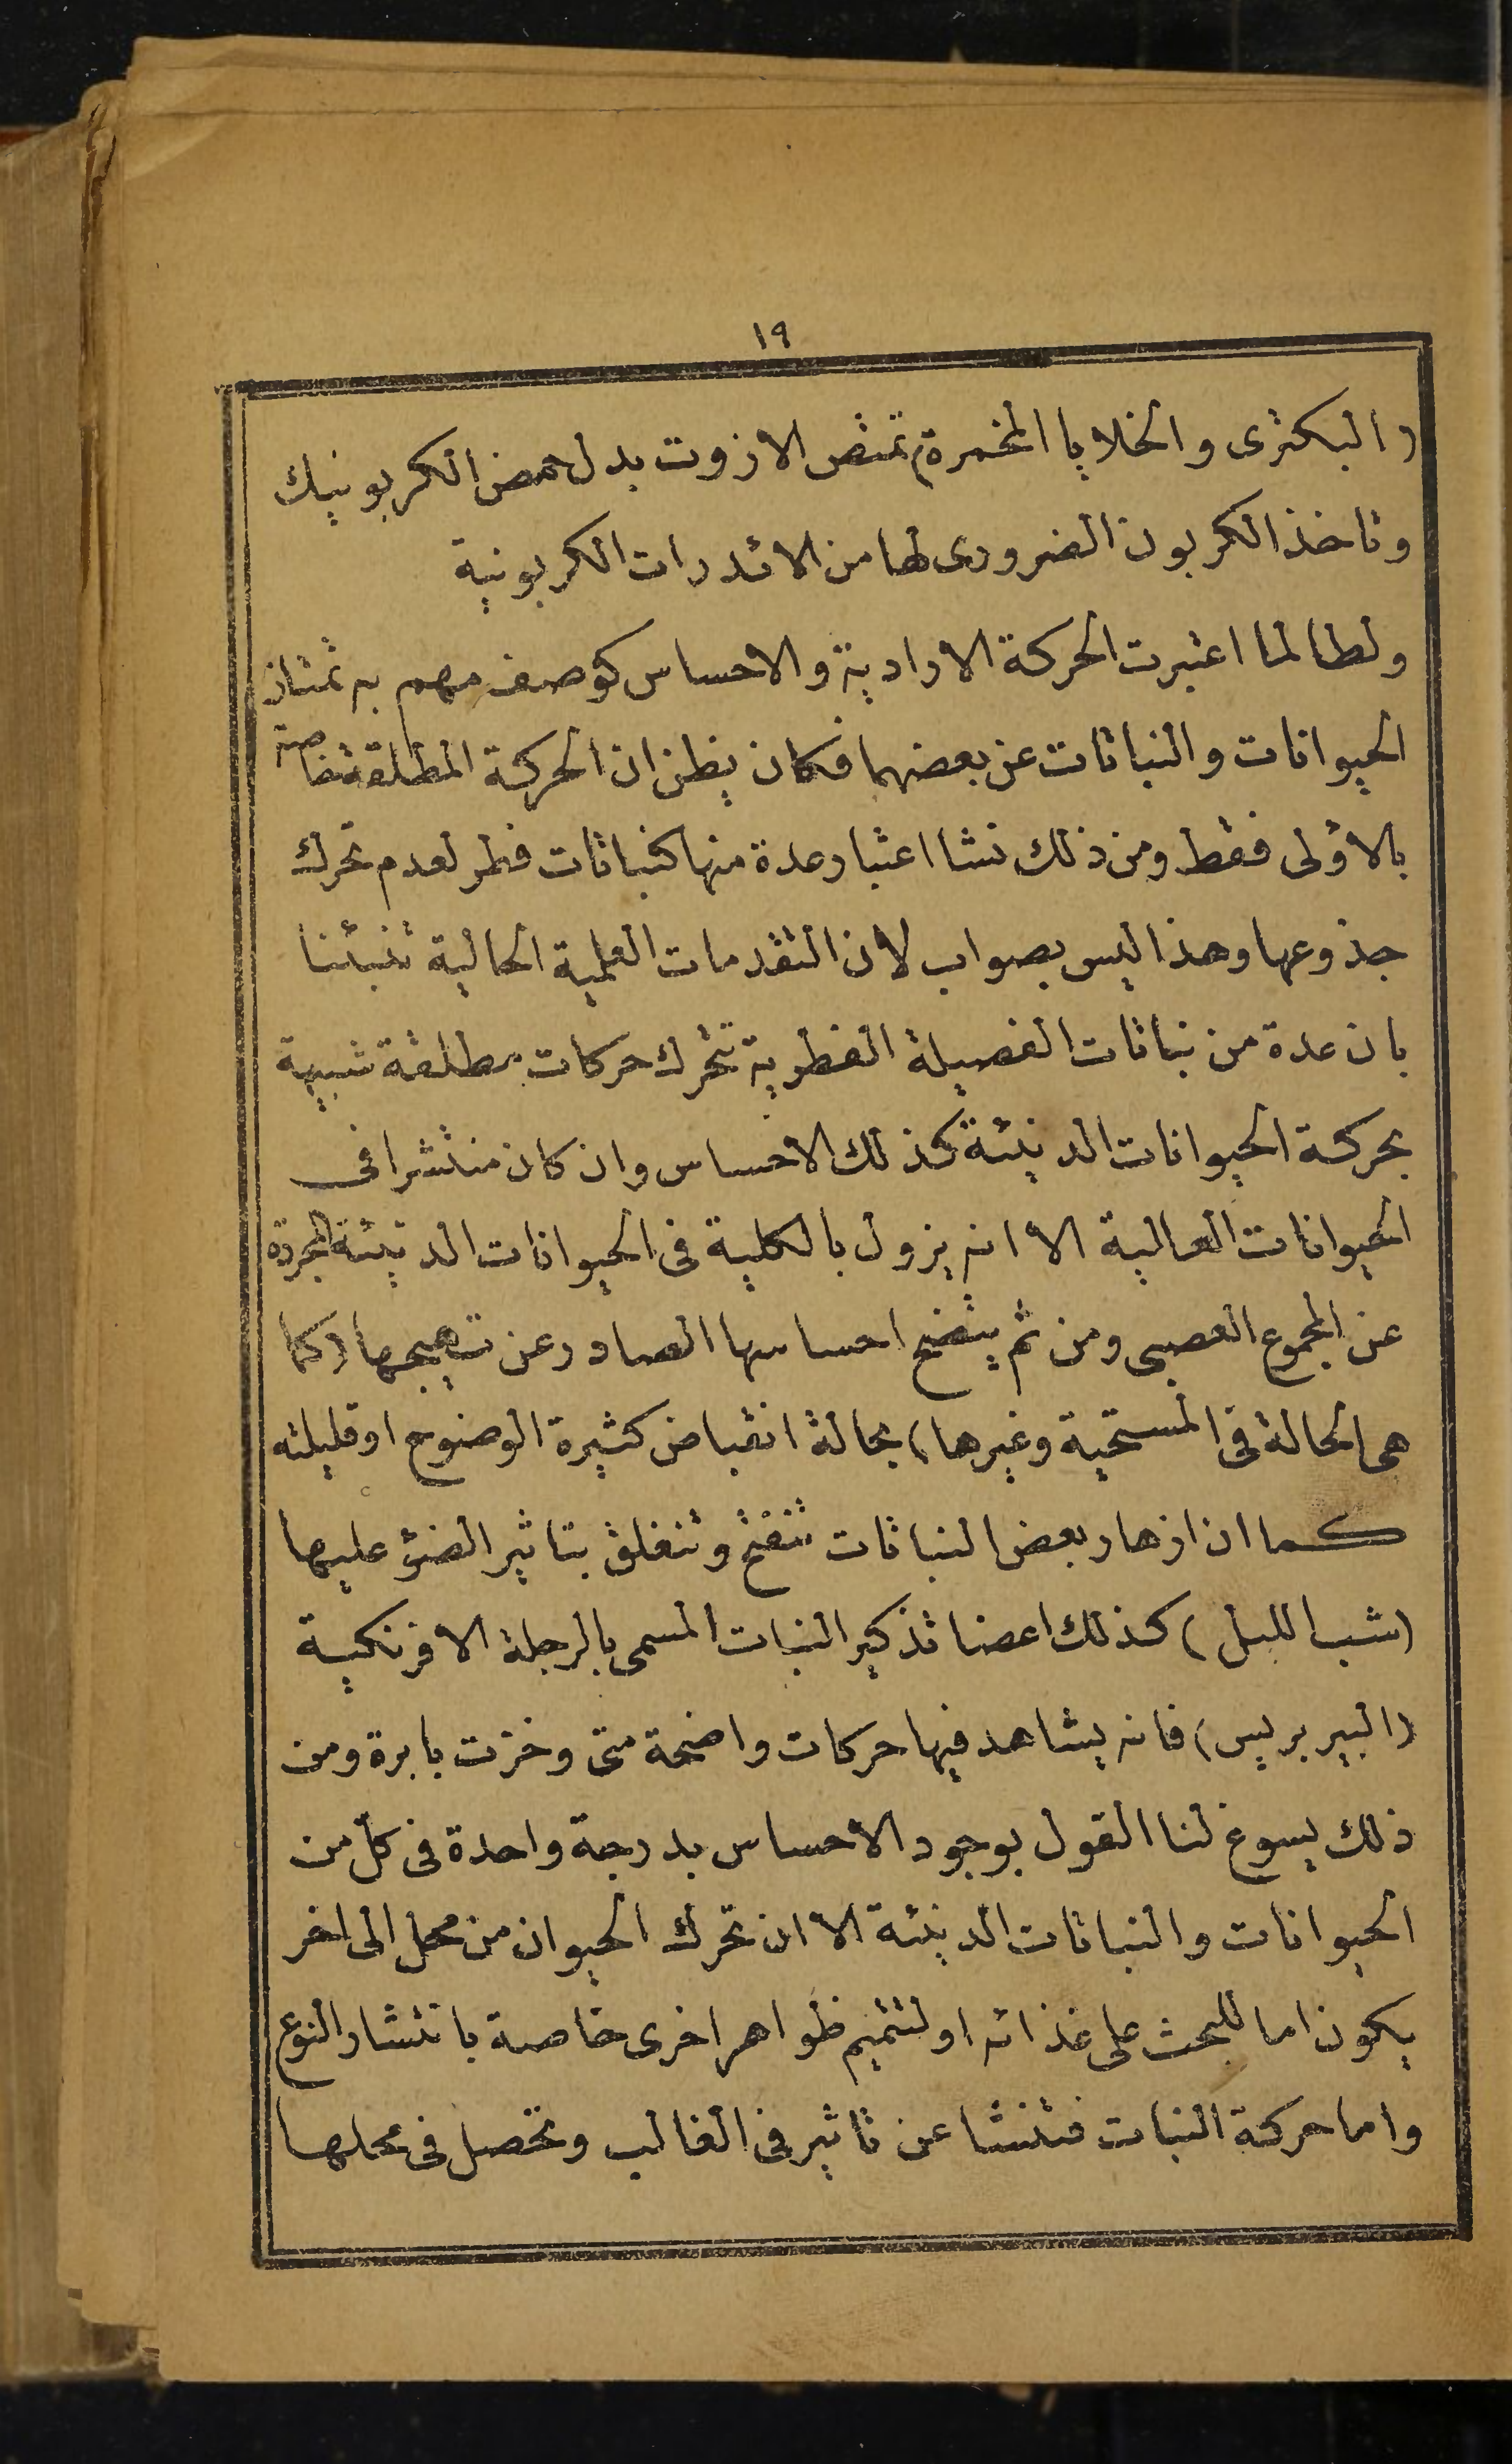 ١٩
(البكترى والخلايا المخمرة) تمتص الازوت بدل حمض الكربونيك
وتاخذ الكربون الضرورى لها من الائدرات الكربونية
ولطالما اعتبرت الحركة الارادية والاحساس كوصف مهم به تمتاز
الحيوانات والنباتات عن بعضهما فكان يظن ان الحركة المطلقة خاصة
بالاولى فقط ومن ذلك نشا اعتبار عدة منها كنباتات فطر لعدم تحرك
جذوعها وهذا ليس بصواب لان التقدمات العلمية الحالية تنبئنا
بان عدة من نباتات الفصيلة الفطرية تتحرك حركات مطلقة شبيهة
بحركة الحيوانات الدنيئة كذلك الاحساس وان كان منتشرا فى
الحيوانات العالية الا انه يزول بالكلية فى الحيوانات الدنيئة المجردة
عن المجموع العصبى ومن ثم يتضح احساسها الصادر عن تهيجها (كما
هى الحالة فى المستحية وغيرها) بحالة انقباض كثيرة الوضوح او قليلته
كما ان ازهار بعض النباتات تتفتح وتنغلق بتاثير الضؤ عليها
(شب الليل) كذلك اعضا تذكير النبات المسمى بالرجلة الافرنكية
(البيربريس) فانه يشاهد فيها حركات واضحة متى وخزت بابرة ومن
ذلك يسوغ لنا القول بوجود الاحساس بدرجة واحدة فى كل من
الحيوانات والنباتات الدنيئة الا ان تحرك الحيوان من محل الى اخر
يكون اما للبحث على غذائه او لتتميم ظواهر اخرى خاصة بانتشار النوع
واما حركة النبات فتنشا عن تاثير فى الغالب وتحصل فى محلها